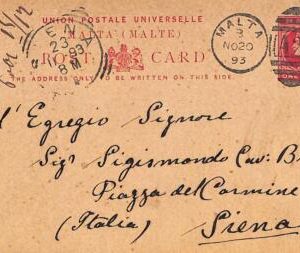 UNION POSTALE UNIVERSELLE
MALTA (MALTE)
POST CARD
THE ADDRESS ONLY TO BE WRITTEN ON THIS SIDE.
23
93
8 M
MALTA
NO 20
93
l'Egregio Signore
Sigr Sigismondo Cav: B
Piazza del Carmine
(Italia) Siena